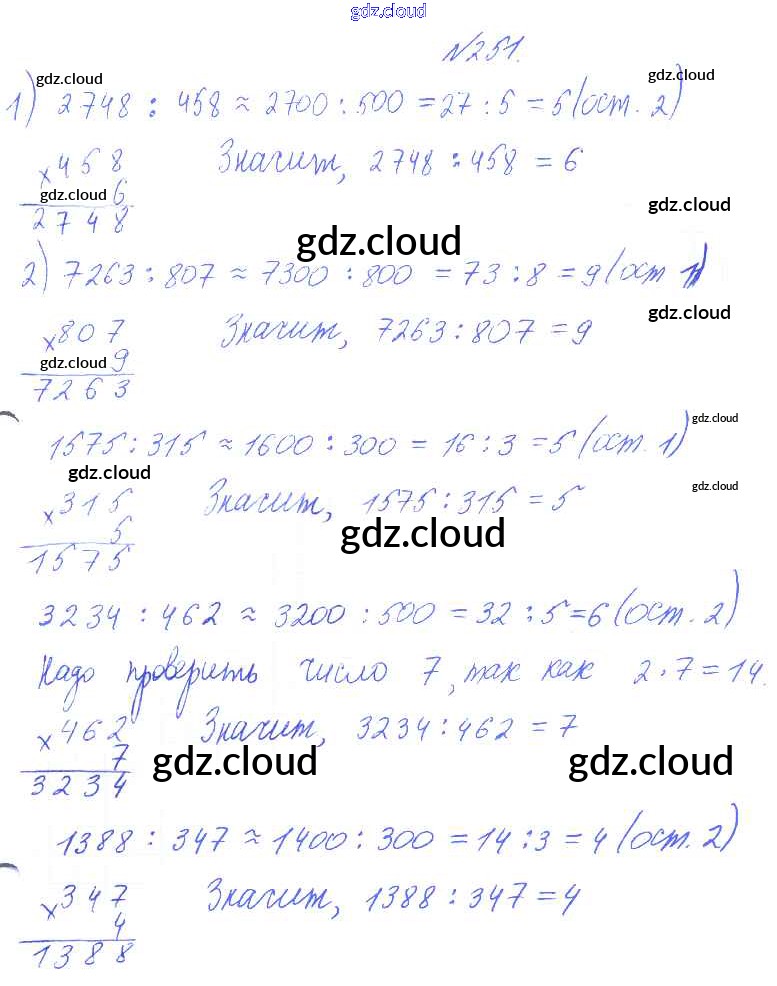 gdz.cloud
№251.
gdz.cloud gdz.cloud
1) 2748 : 458 ≈ 2700 : 500 = 27 : 5 = 5 (ост. 2)
× 458 Значит, 2748 : 458 = 6
gdz.cloud 6 gdz.cloud
2748
gdz.cloud
2) 7263 : 807 ≈ 7300 : 800 = 73 : 8 = 9 (ост 1)
gdz.cloud
× 807 Значит, 7263 : 807 = 9
gdz.cloud 9
7263
gdz.cloud
1575 : 315 ≈ 1600 : 300 = 16 : 3 = 5 (ост. 1)
gdz.cloud gdz.cloud
× 315 Значит, 1575 : 315 = 5
5 gdz.cloud
1575
3234 : 462 ≈ 3200 : 500 = 32 : 5 = 6 (ост. 2)
Надо проверить число 7, так как 2 · 7 = 14.
× 462 Значит, 3234 : 462 = 7
7 gdz.cloud gdz.cloud
3234
1388 : 347 ≈ 1400 : 300 = 14 : 3 = 4 (ост. 2)
× 347 Значит, 1388 : 347 = 4
4
1388